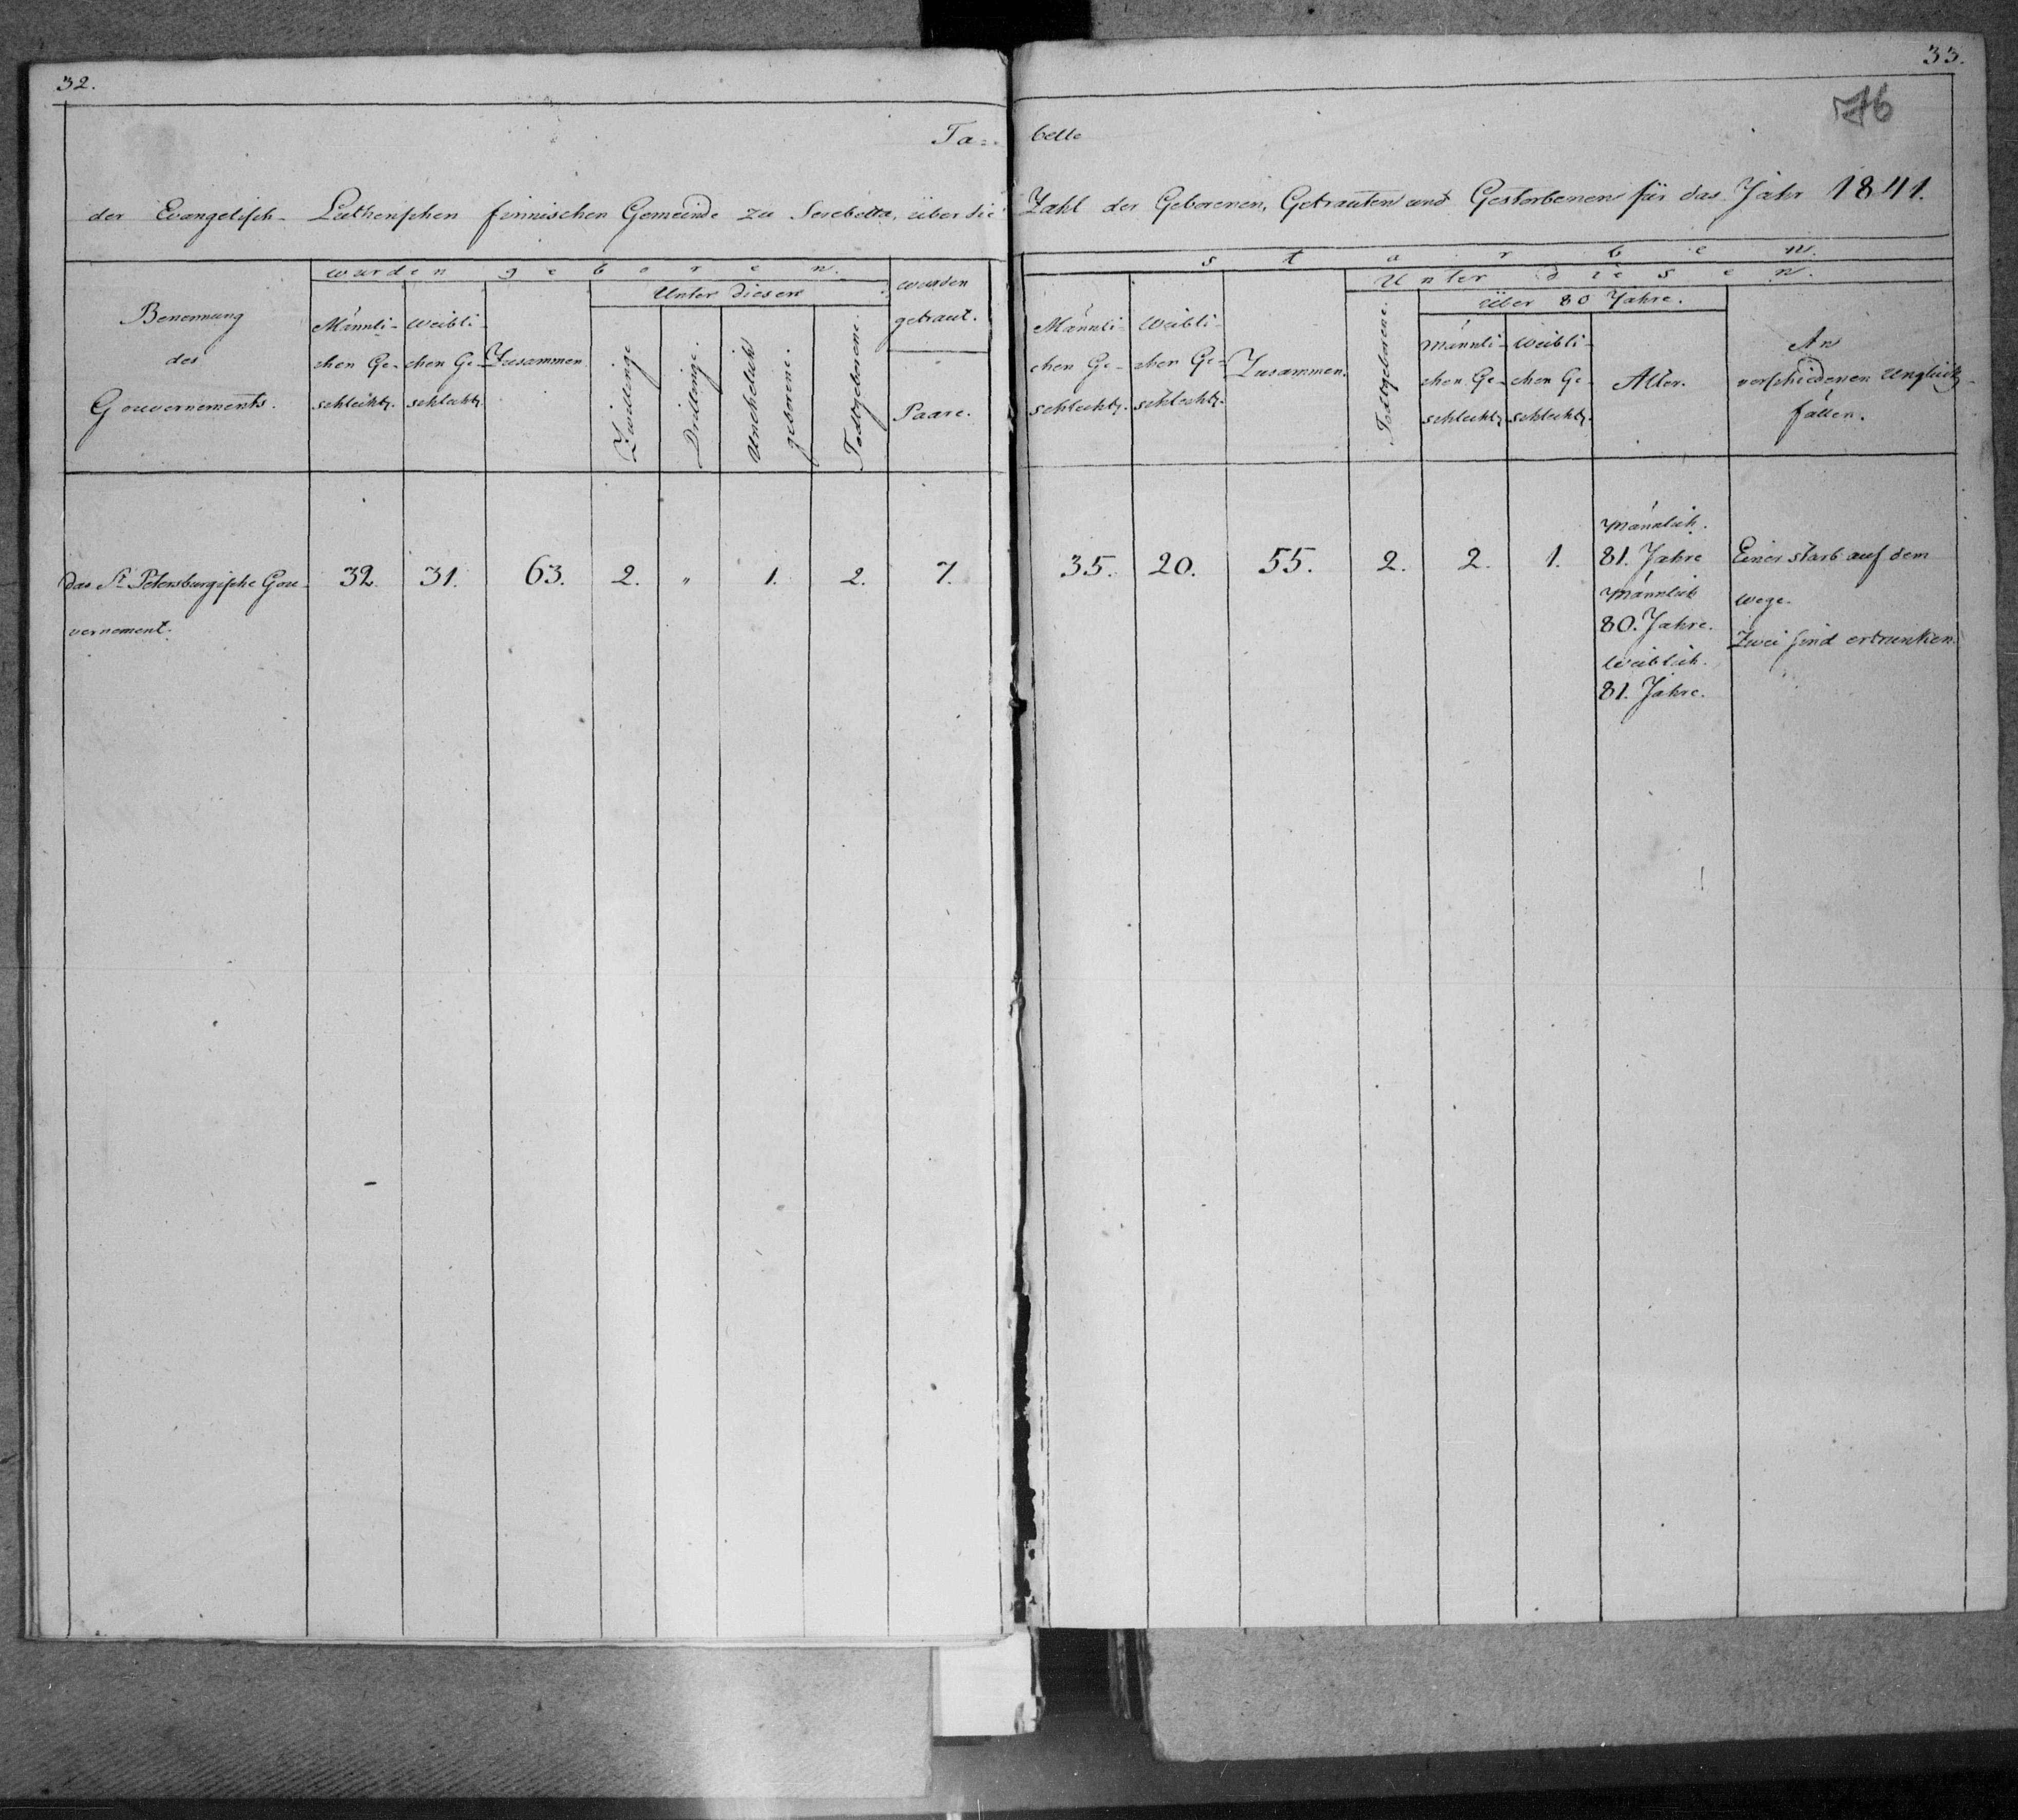 32.
33.
76
Ta=
belle
der Evangelisch- Lutherischen finnischen Gemeinde zu Serebetta, über die
Zahl der Geborenen, Getrauten und Gestorbenen für das Jahr 1841.
Benennung
des
Gouvernements.
wurden geboren.
Männli-
chen Ge-
schlechts.
Weibli-
chen Ge-
schlechts.
Zusammen
Unter diesen
Zwillinge
Drillinge.
Unehelich
geborene.
Todtgeborene.
wurden
getraut.
Paare.
starben.
Männli-
chen Ge-
schlechts.
Weibli-
chen Ge-
schlechts.
Zusammen.
Unter diesen.
Todtgeborene.
über 80 Jahre.
männli-
chen Ge-
schlechts
weibli-
chen Ge-
schlechts.
Alter.
An
verschiedenen Unglücks-
fällen.
das St. Petersburgische Gou-
vernement.
32. 31. 63. 2. " 1. 2. 7.
35. 20. 55. 2. 2. 1.
männlich.
81. Jahre
männlich
80. Jahre.
Weiblich.
81. Jahre.
Einer starb auf dem
Wege.
Zwei sind ertrunken.